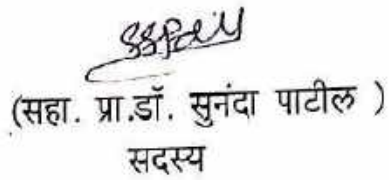 (सहा. प्रा.डॉ. सुनंदा पाटील )
सदस्य